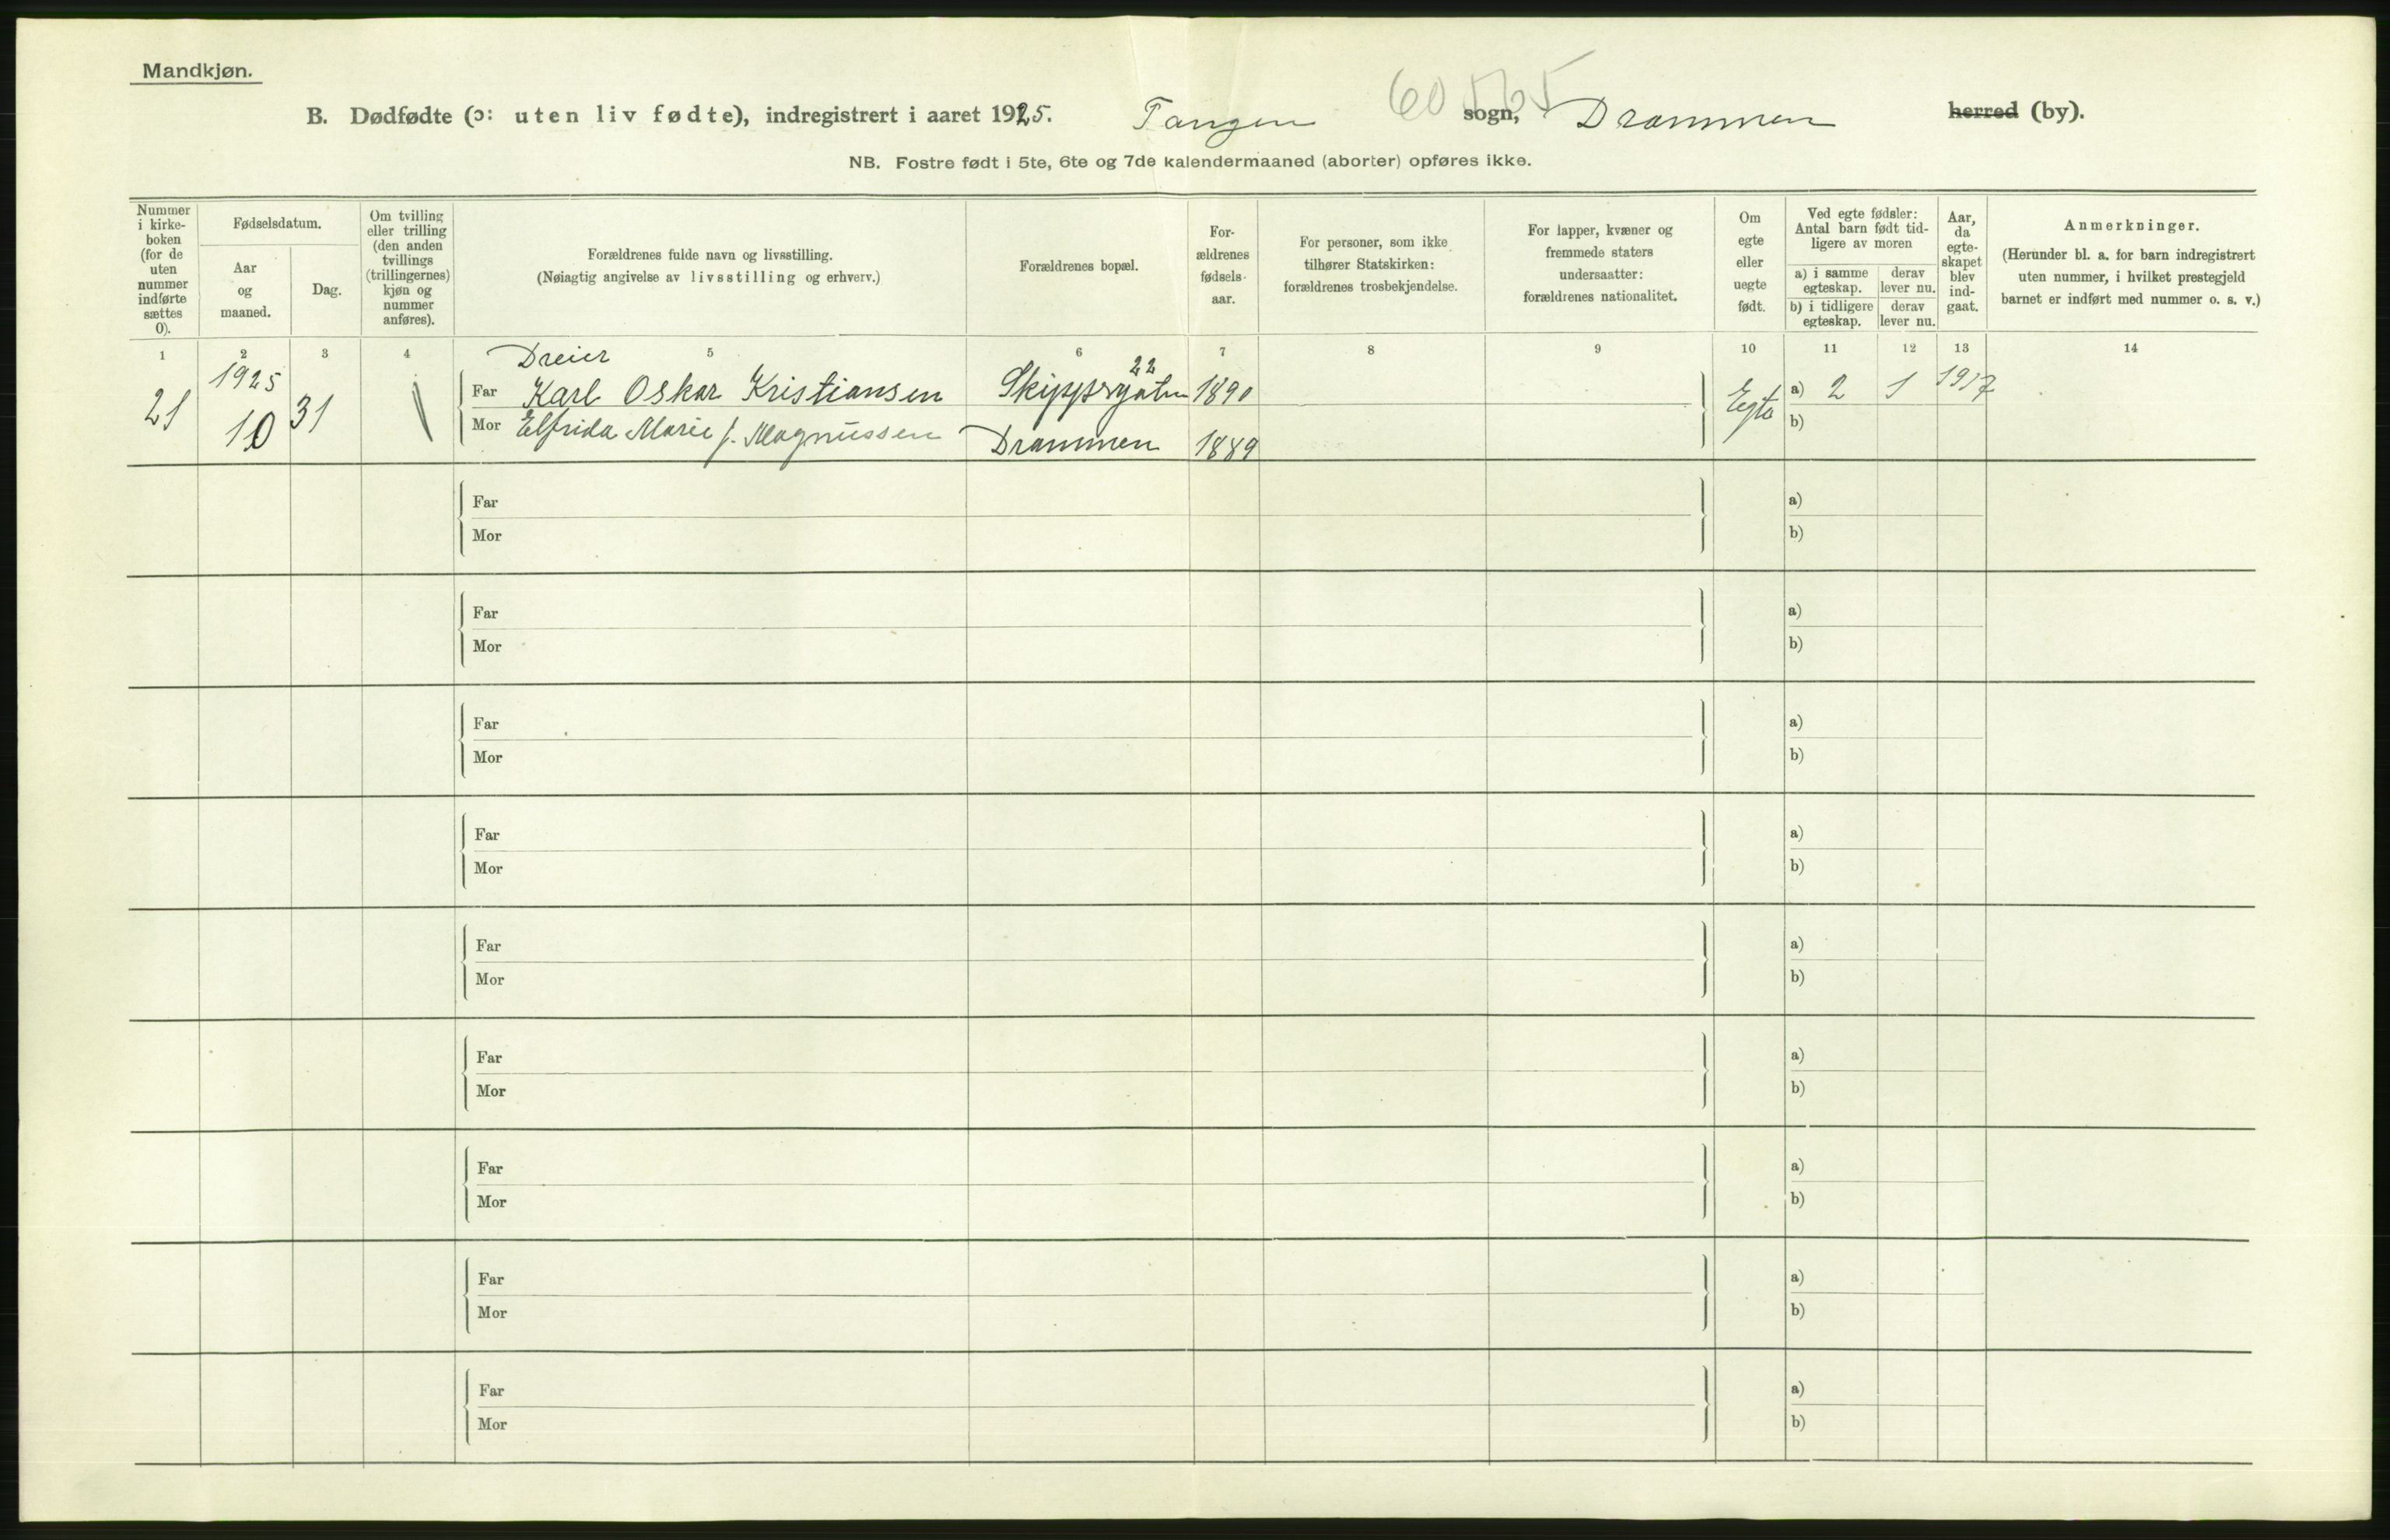 Mandkjøn.
60 565
B. Dødfødte (ɔ: uten liv fødte), indregistrert i aaret 1925. Tangen sogn, Drammen herred (by).
NB. Fostre født i 5te, 6te og 7de kalendermaaned (aborter) opføres ikke.
Nummer
i kirke-
boken
(for de
uten
nummer
indførte
sættes
0).
Fødselsdatum.
Aar
og
maaned.
Dag.
Om tvilling
eller trilling
(den anden
tvillings
(trillingernes)
kjøn og
nummer
anføres).
Forældrenes fulde navn og livsstilling.
(Nøiagtig angivelse av livsstilling og erhverv.)
Forældrenes bopæl.
For-
ældrenes
fødsels-
aar.
For personer, som ikke
tilhører Statskirken:
forældrenes trosbekjendelse.
For lapper, kvæner og
fremmede staters
undersaatter:
forældrenes nationalitet.
Om
egte
eller
uegte
født.
Ved egte fødsler:
Antal barn født tid-
ligere av moren
a) i samme
egteskap.
derav
lever nu.
b) i tidligere
egteskap.
derav
lever nu.
Aar,
da
egte-
skapet
blev
ind-
gaat.
Anmerkninger.
(Herunder bl. a. for barn indregistrert
uten nummer, i hvilket prestegjeld
barnet er indført med nummer o. s. v.)
1 2 3 4 5 6 7 8 9 10 11 12 13 14
Dreier
21 1925 10 31
Far Karl Oskar Kristiansen Skippergaten 22 1890
Mor Elfrida Marie f. Magnussen Drammen 1889
Egte a) 2 1 1917
b)
Far a)
Mor b)
Far a)
Mor b)
Far a)
Mor b)
Far a)
Mor b)
Far a)
Mor b)
Far a)
Mor b)
Far a)
Mor b)
Far a)
Mor b)
Far a)
Mor b)